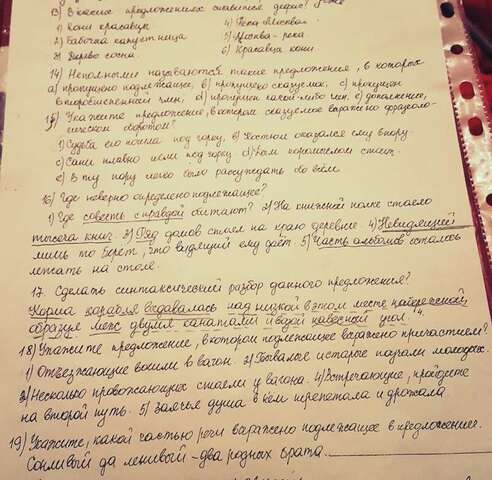 13) В каких предложениях ставится дефис?
1) Кони красавцы 4) Река Москва
2) Бабочка капустница 5) Москва-река
3) Дерево сосна 6) Красавцы кони
14) Неполными называются такие предложения, в которых
а) пропущено подлежащее, в) пропущено сказуемое, с) пропущен
второстепенный член, d) пропущен какой-либо чл. е) дополнение,
15) Укажите предложение, в котором сказуемое выражено фразеоло-
гическом оборотом?
а) Судьба его пошла под горку, в) Костюм оказался ему впору
с) Сани плавно шли под горку d) Дым коромыслом стоит
е) В ту пору легко было рассуждать обо всём
16) Где неверно определено подлежащее?
1) Где совесть с правдой обитают? 2) На книжной полке стояло
тысяча книг. 3) Ряд домов стоял на краю деревне. 4) Невидящий
лишь то берёт, что видящий ему даёт. 5) Часть альбомов осталась
лежать на столе.
17. Сделать синтаксический разбор данного предложения?
Корма корабля выдавалась над низкой в этом месте набережной,
образуя меж двумя канатами и водой навесной угол.
18) Укажите предложение, в котором подлежащее выражено причастием?
1) Отъезжающие вошли в вагон. 2) Бывалые и старые поучали молодых.
3) Несколько провожающих стояли у вагона. 4) Встречающие, пройдите
на второй путь. 5) Заячья душа в нём трепетала и дрожала
19) Укажите, какой частью речи выражено подлежащее в предложении.
Сонливый да ленивый - два родных брата.